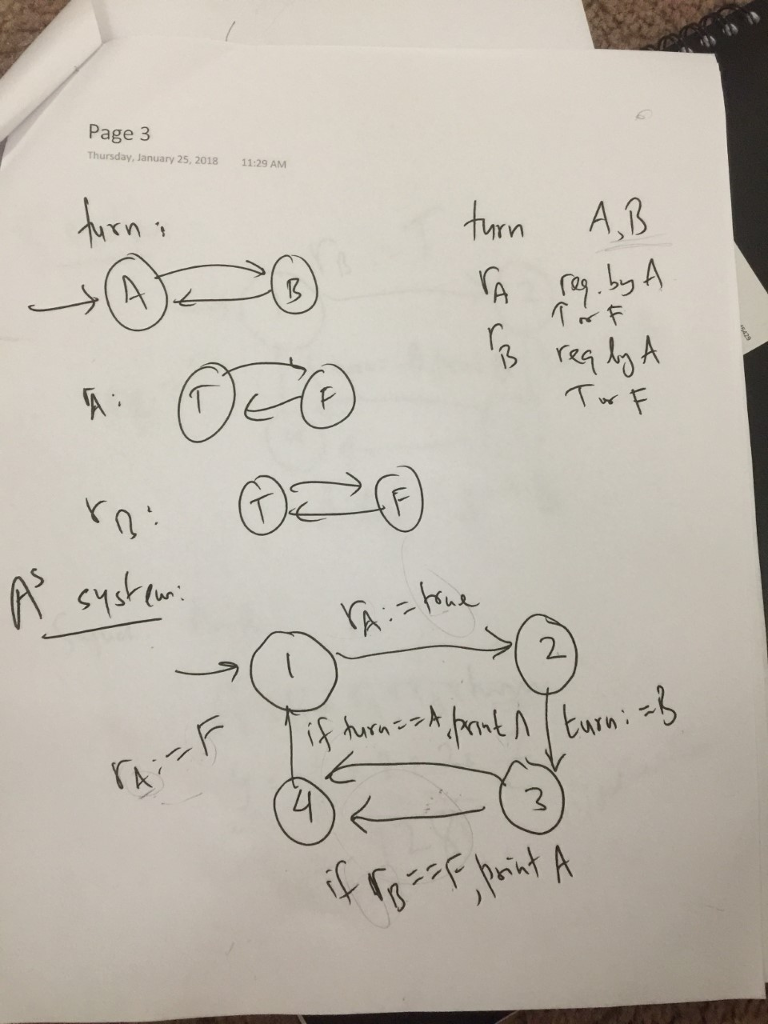 Page 3
Thursday, January 25, 2018 11:29 AM
turn:
A B
turn A, B
rA req. by A
T or F
rB req by A
T or F
rA:
T F
rB:
T F
A's system:
rA:=true
1 2
if turn==A, print A
turn:=B
rA:=F
4 3
if rB==F, print A